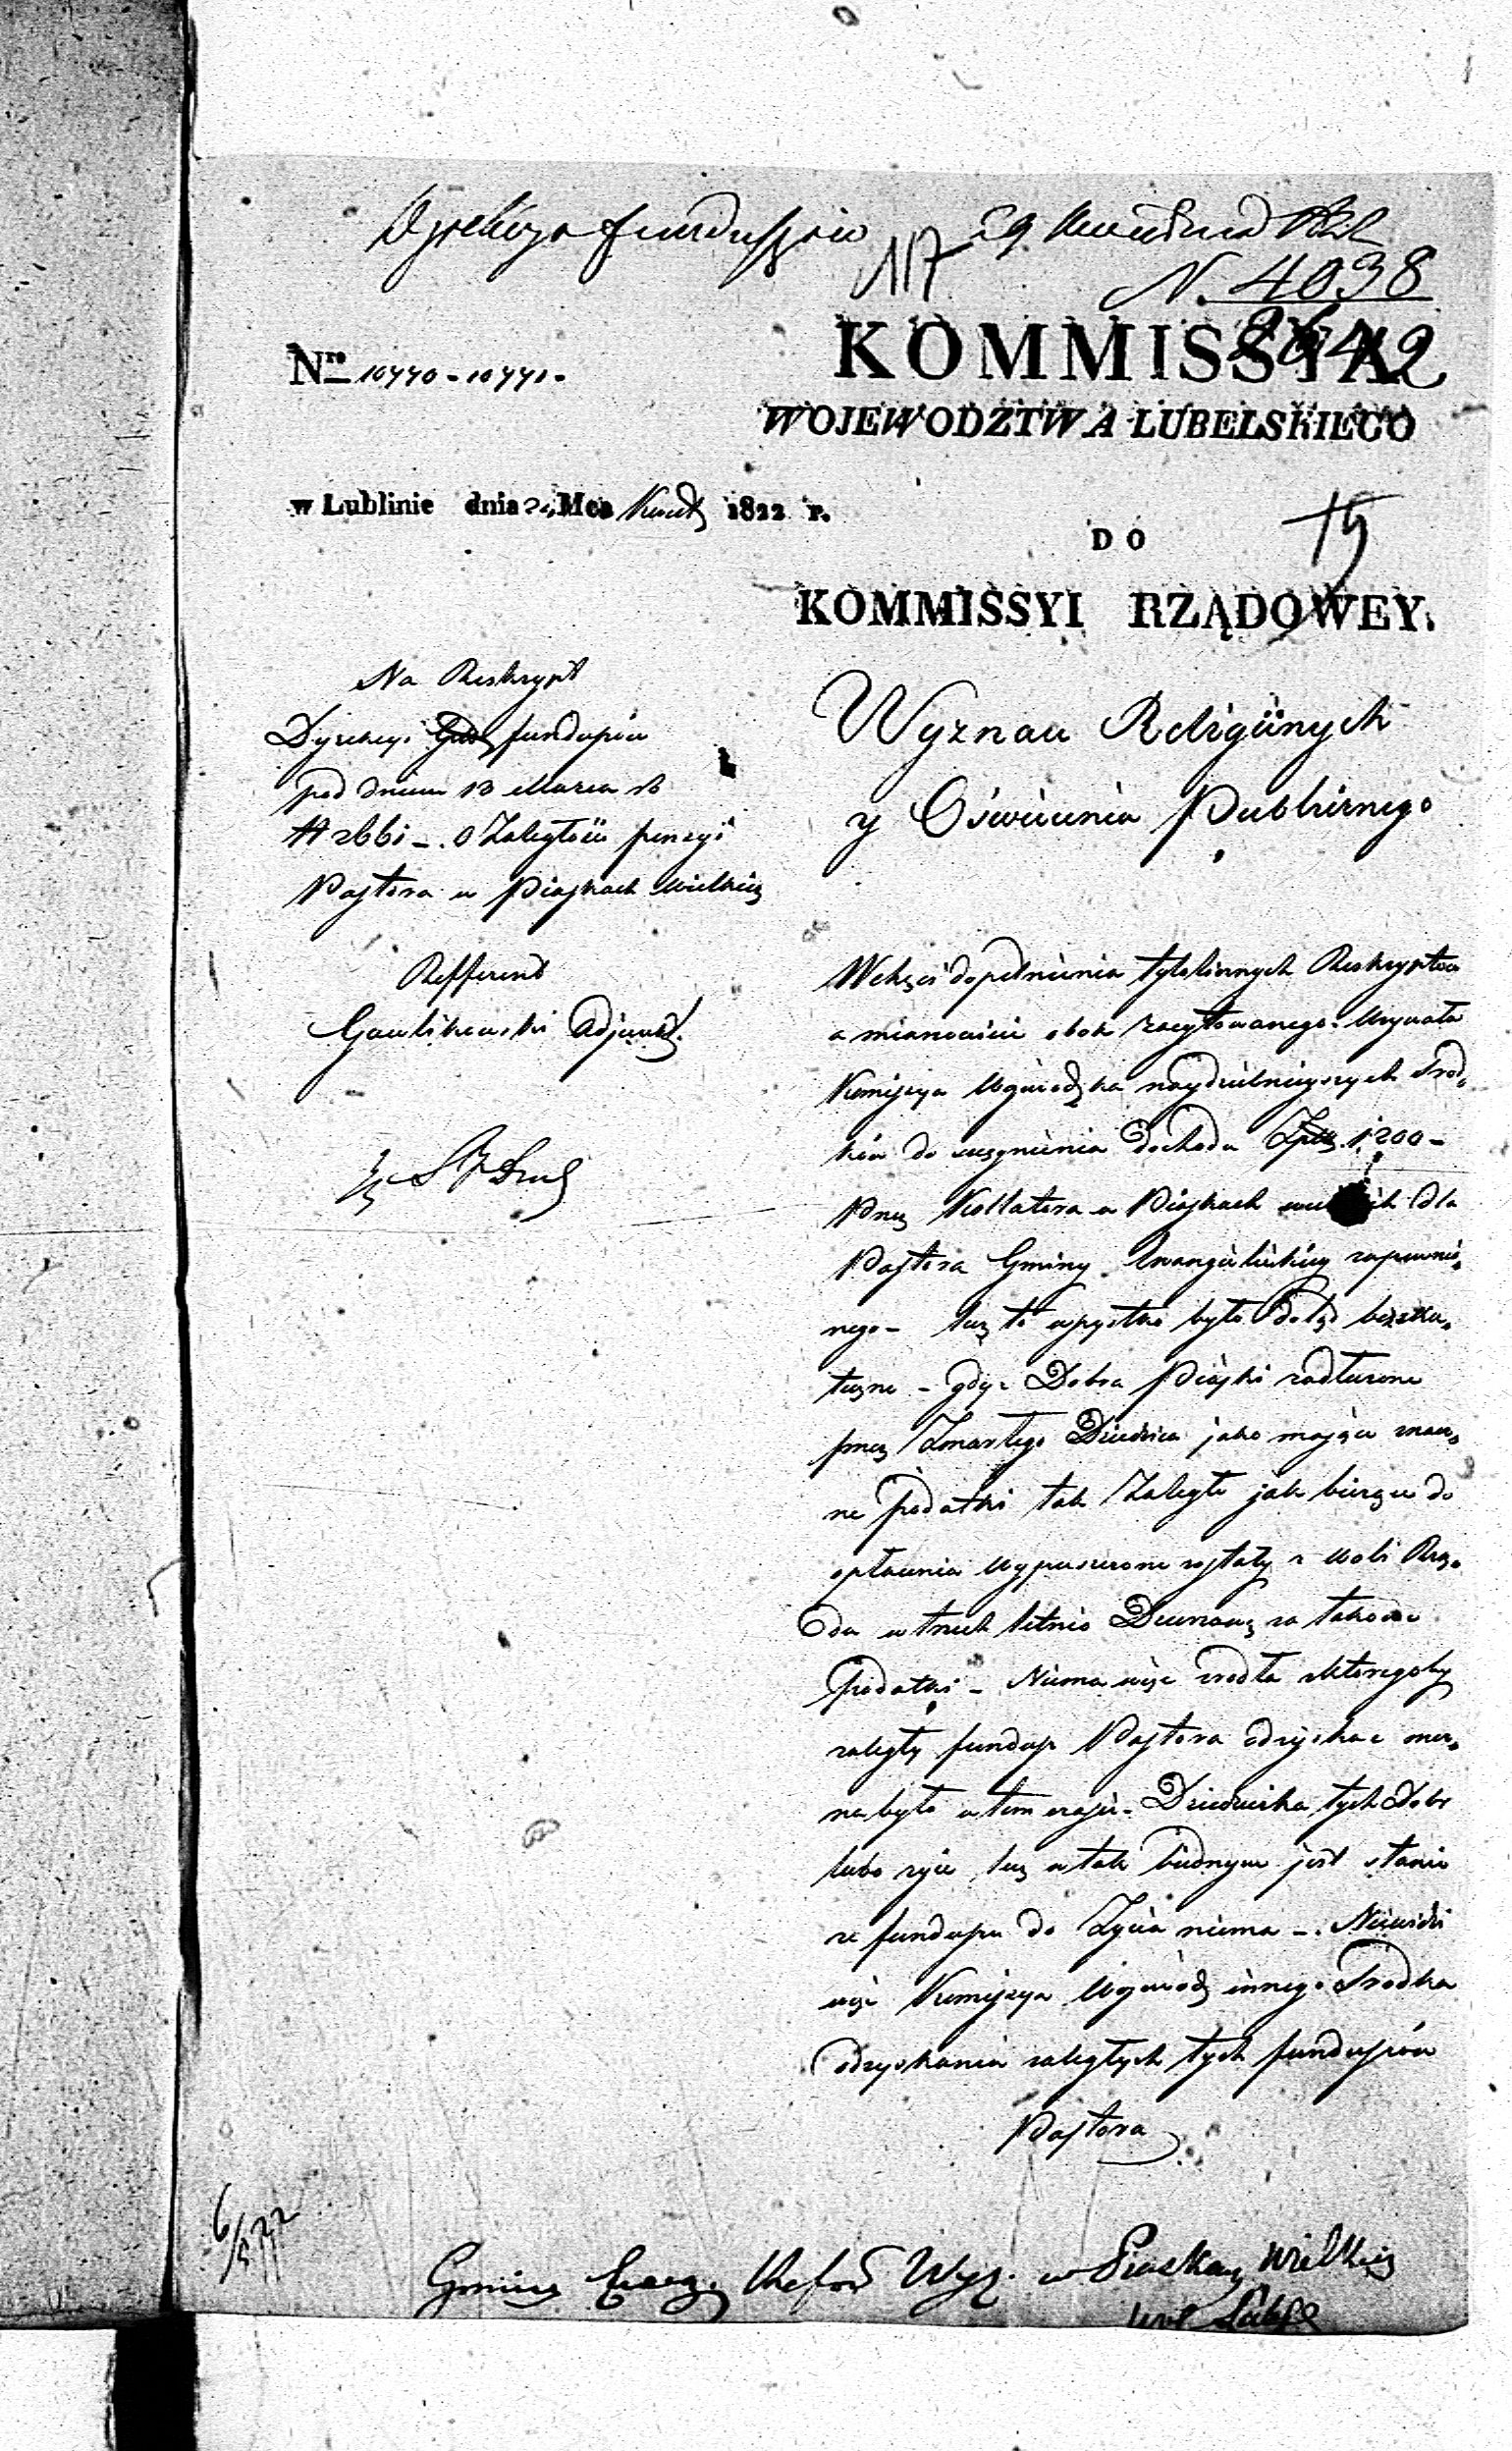 Dyrekcya funduszów
29 Kwietnia 1822
117
N. 4038
2642
Nro 10770 - 10771 -
KOMMISSYA
WOJEWODZTWA LUBELSKIEGO
w Lublinie dnia Mca Kwiet 1822 r.
DO
19
KOMMISSYI RZĄDOWEY.
Wyznan Religiinych
y Oświecenia Publicznego
Na Reskrypt
Dyrekcyi funduszów
pod dniem 13 Marca rb
N 2661 -. o Zaległości pensyi
Pastora w Piaskach Wielkich
Refferent
Gawlikowski Adjunkt.
W chęci dopełnienia tylolicznych Reskryptow
a mianowicie obok zacytowanego. Używała
Komissya Wojewodzka naydzielnieyszych Srod,
ków do ściągnienia Dochodu Zpol. 1200 -
Przez Kollatora w Piaskach wielkich dla
Pastora Gminy Ewangielickiey zapewnio,
nego - lecz to wszystko było Dotąd bezsku,
teczne - gdyż Dobra Piaski zadłużone
przez Zmarłego Dziedzica jako mające znacz,
ne podatki tak Zaległe jak bieżące do
opłacenia wypuszczone zostały z woli Rzą,
du w trzech letnio Dzierżawę za takowe
Podatki - Niema więc zrodła z ktoregoby
zaległy fundusz Pastora odzyskać moz,
na było w tem czasie - Dziedziczka tych Dobr
lubo zyie lecz w tak biednym jest stanie
ze funduszu do Życia niema -. Niewidzi
więc Komissya Wojewodz innego Srodka
odzyskania zaległych tych funduszów
Pastora
6/5 22
Gminy Ewang. Refor Wyz. w Piaskach Wielkich